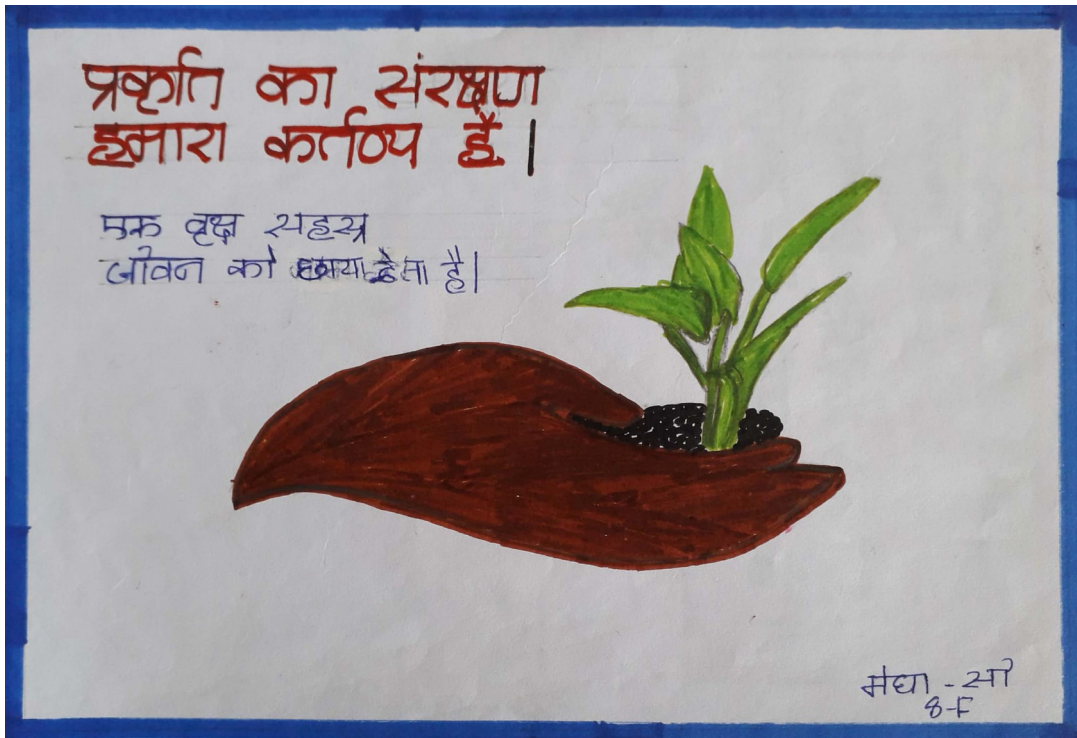 प्रकृति का संरक्षण
हमारा कर्तव्य है।
एक वृक्ष सहस्र
जीवन को छाया देता है।
मेघा - सी
8-F